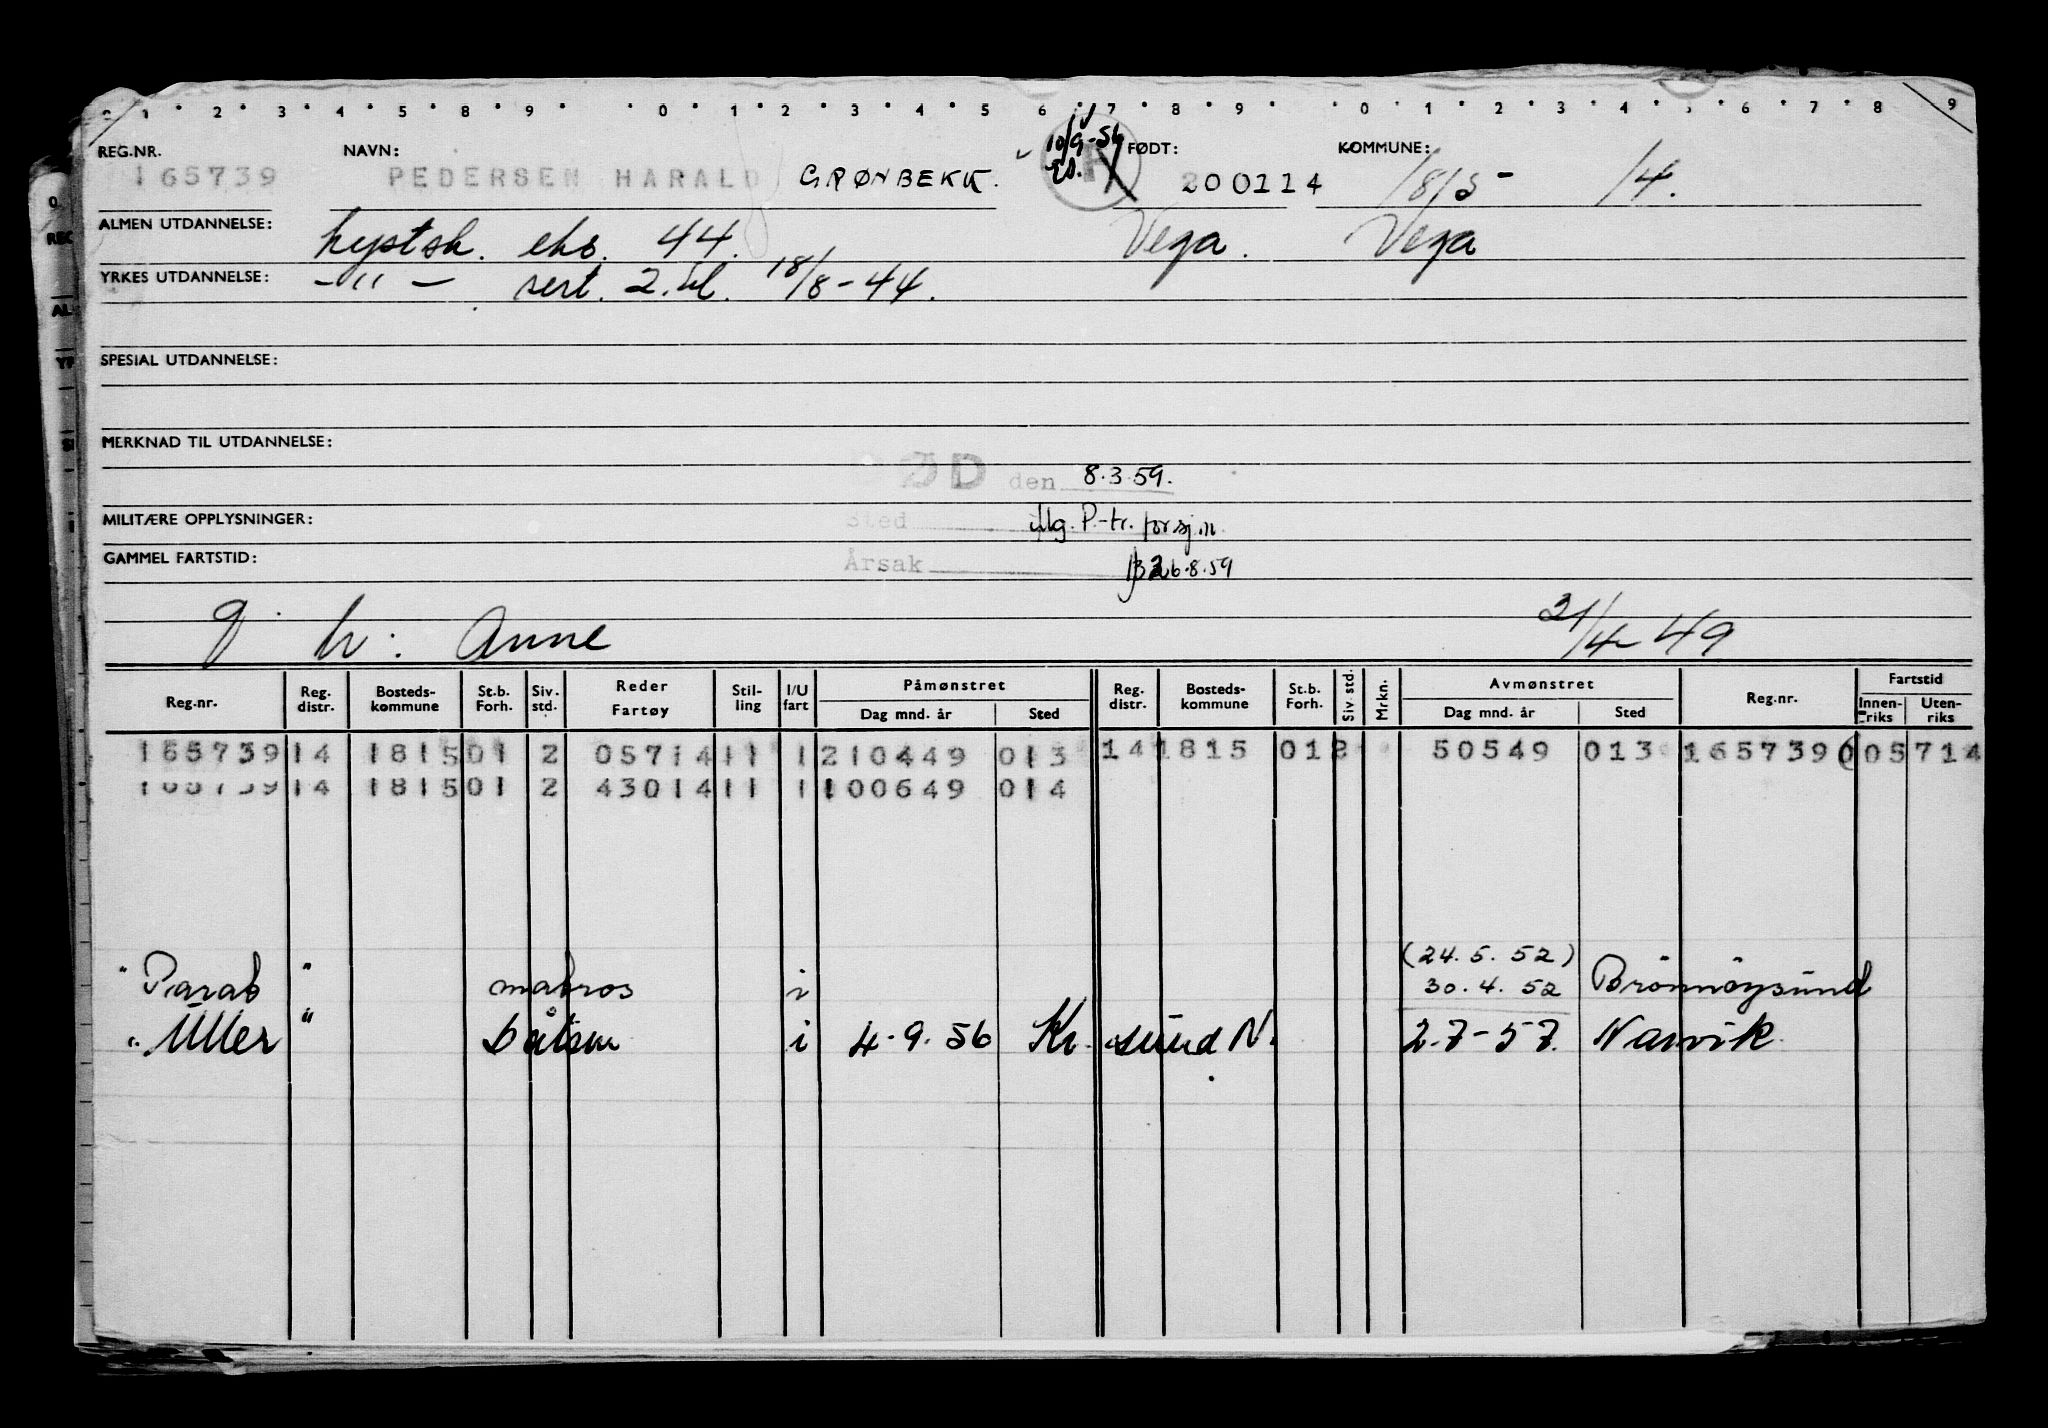 1 2 3 4 5 8 9 0 1 2 3 4 5 6 7 8 9 0 1 2 3 4 5 6 7 8 9
REG.NR. NAVN: 10/9-56 FØDT: KOMMUNE:
165739 PEDERSEN HARALD GRØNBEKK. 200114 1815 - 14.
ALMEN UTDANNELSE: kystsk. eks. 44. Vega. Vega
YRKES UTDANNELSE: -"- sert. 2. kl. 18/8-44.
SPESIAL UTDANNELSE:
MERKNAD TIL UTDANNELSE:
DØD den 8.3.59.
MILITÆRE OPPLYSNINGER: Sted ifлg. P-tr. for sj.m.
GAMMEL FARTSTID: Årsak 26.8.59
g. h: Anne 21/4-49
Reg.nr. Reg. distr. Bosteds-kommune St.b. Forh. Siv. std. Reder Fartøy Stil-ling I/U fart Påmønstret Dag mnd. år Sted Reg. distr. Bosteds-kommune St.b. Forh. Siv. std. Mrkn. Avmønstret Dag mnd. år Sted Reg.nr. Fartstid Innen-riks Uten-riks
165739 14 1815 01 2 05714 11 1 210449 013 14 1815 01 2 50549 013 165739 005714
165739 14 1815 01 2 43014 11 1 100649 014
(24.5.52)
" Parat " matros i 30.4.52 Brönnöysund
" Uller " båtsm i 4-9.56 Kr.sund N. 2-7-57. Narvik.